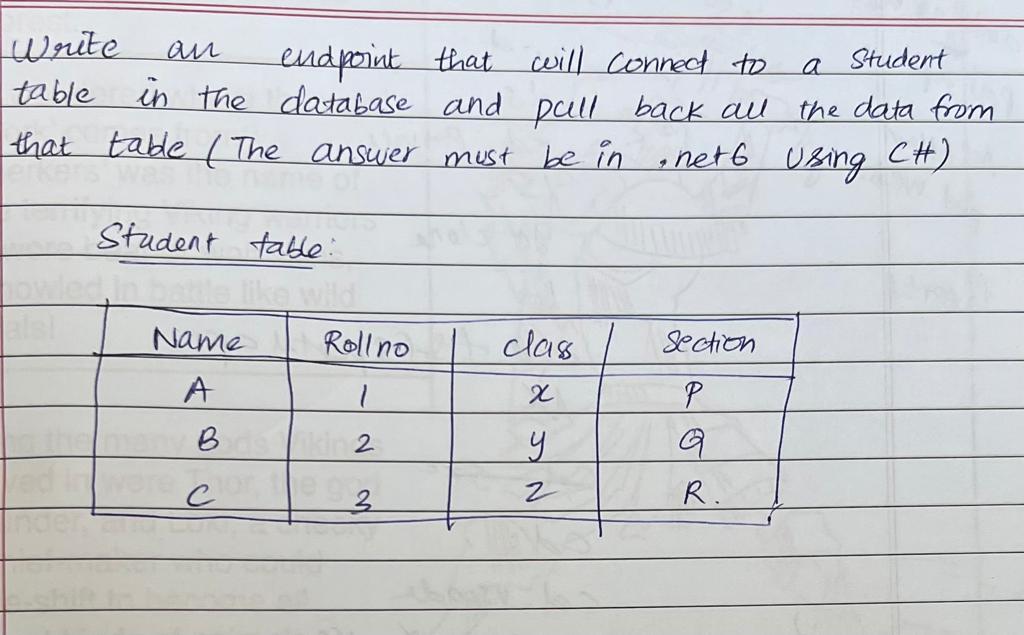 Write an endpoint that will connect to a Student
table in the database and pull back all the data from
that table (The answer must be in .net6 Using C#)
Student table:
Name Rollno class Section
A 1 x P
B 2 y Q
C 3 z R.